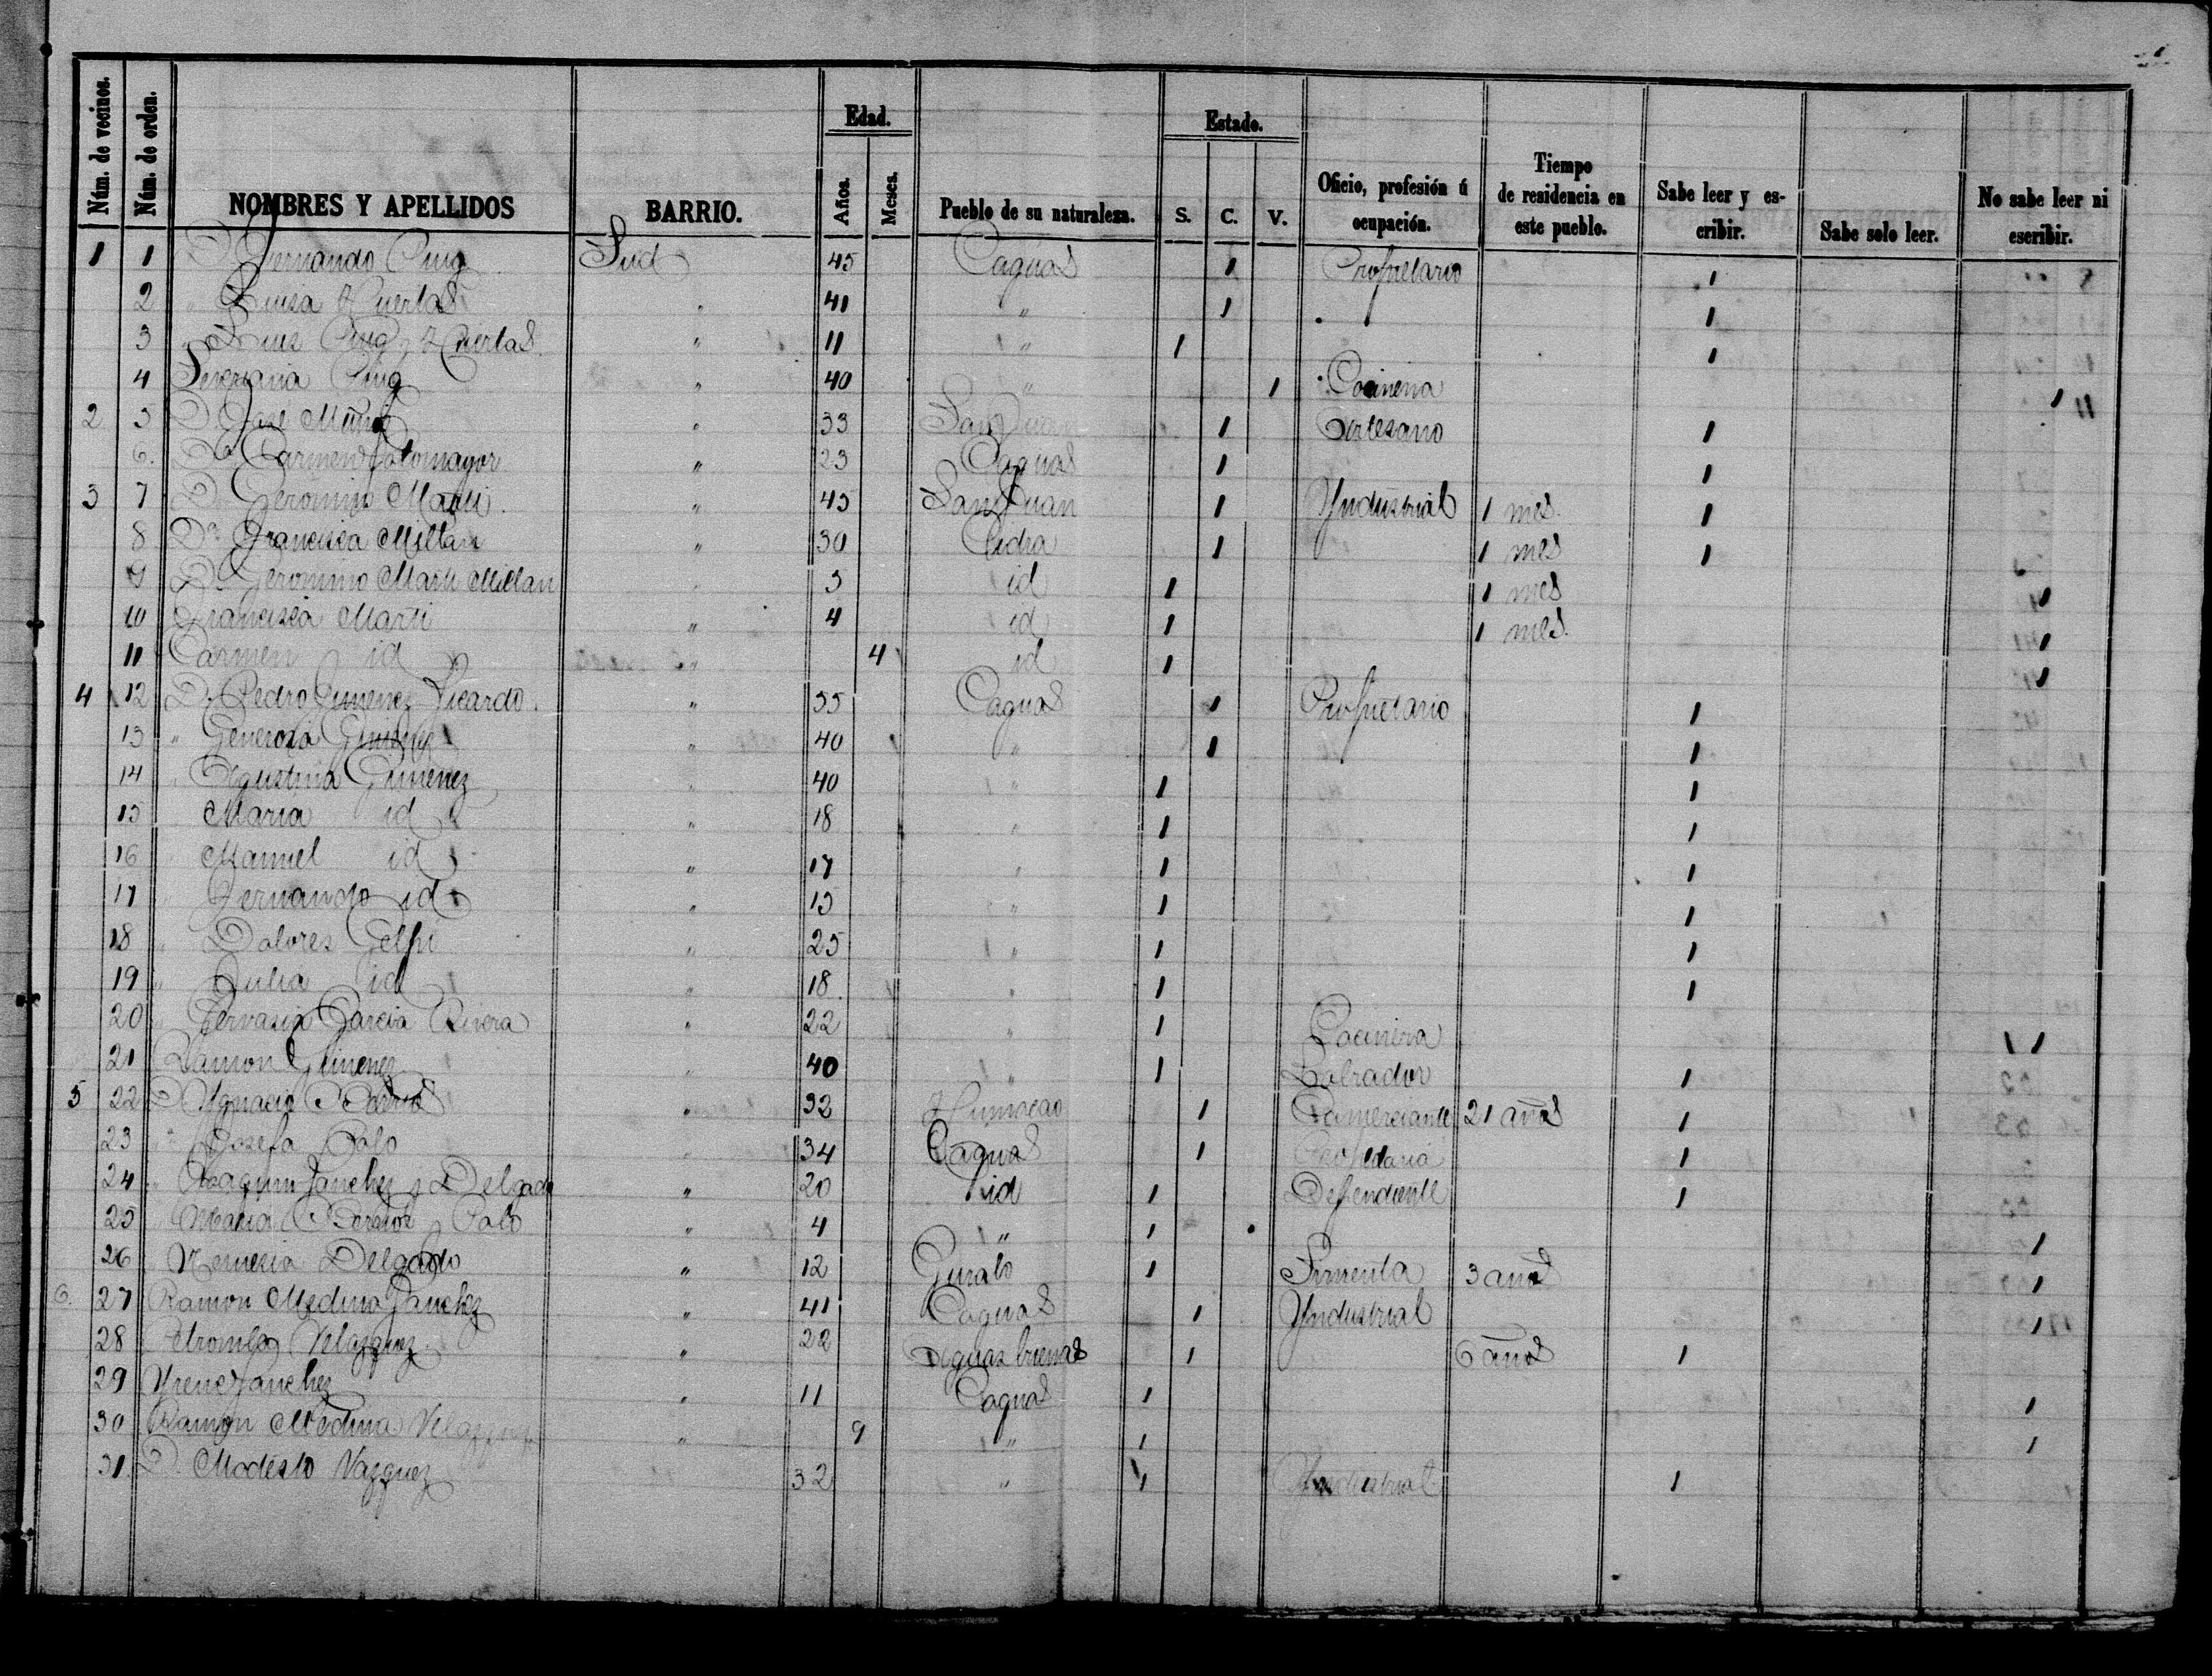 Núm. de vecinos. Núm. de orden. NOMBRES Y APELLIDOS BARRIO. Edad. Años. Meses. Pueblo de su naturaleza. Estado. S. C. V. Oficio, profesión ú ocupación. Tiempo de residencia en este pueblo. Sabe leer y escribir. Sabe solo leer. No sabe leer ni escribir.
1 1 D. Fernando Puig Sud 45 Caguas 1 Propietario 1
2 " Luisa Huertas " 41 " 1 1
3 " Luis Puig y Huertas " 11 " 1 1
4 Puig " 40 " 1 Cocinera 1
2 5 D. José Muñoz " 33 San Juan 1 Artesano 1
6. Da Carmen Sotomayor " 23 Caguas 1 1
3 7 D. Gerónimo Marti. " 45 San Juan 1 Yndustrial 1 mes. 1
8 Da Francisca Millan " 30 Cidra 1 1 mes 1
9 D. Geronimo Marti Millan " 5 id 1 1 mes 1
10 Francisca Marti " 4 id 1 1 mes. 1
11 Carmen id " 4 id 1 1
4 12 D. Pedro Gimenez Sicardo. " 55 Caguas 1 Propietario 1
13 " Generosa " 40 " 1 1
14 " Agustina Gimenez " 40 " 1 1
15 Maria id " 18 " 1 1
16 " Manuel id " 17 " 1 1
17 " Fernando id " 15 " 1 1
18 " Dolores Gelpi " 25 " 1 1
19 " Julia id " 18 " 1 1
20 " Gervasia Garcia Rivera " 22 " 1 Cocinera 1
21 Ramon Gimenez " 40 " 1 Labrador 1
5 22 D. Ygnacio " 32 Humacao 1 Comerciante 21 años 1
23 " Josefa Polo " 34 Caguas 1 Propietaria 1
24 " Joaquin Sanchez y Delgado " 20 id 1 Dependiente 1
25 " Maria Polo " 4 " 1 1
26 " Nemecia Delgado " 12 Gurabo 1 Sirvienta 3 años 1
6. 27 Ramon Medina Sanchez " 41 Caguas 1 Yndustrial 1
28 Petronila Velazquez. " 22 Aguas buenas 1 6 años 1
29 Yrene Sanchez " 11 Caguas 1 1
30 Ramon Medina Velazquez " 9 " 1 1
31. D. Modesto Vazquez 32 " 1 Yndustrial 1